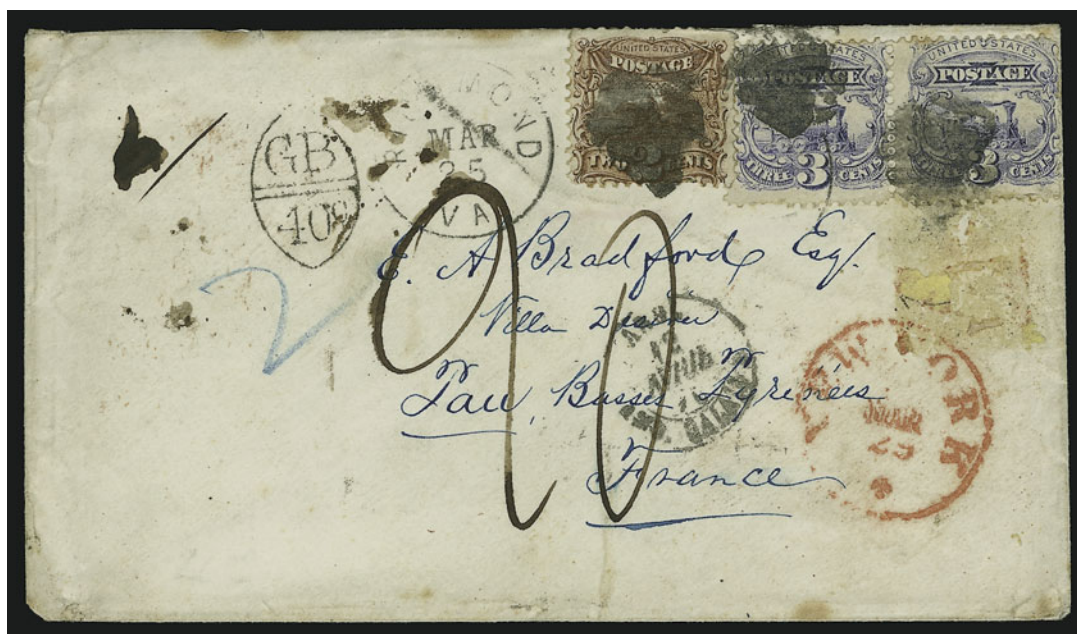 UNITED STATES
POSTAGE
TWO CENTS
UNITED STATES
POSTAGE
THREE 3 CENTS
UNITED STATES
POSTAGE
THREE 3 CENTS
MAR
25
VA
GB
40c
2
E. A Bradford Esq.
Villa
Pau, Basses Pyrénées
France
NEW YORK
AMB. CALAIS